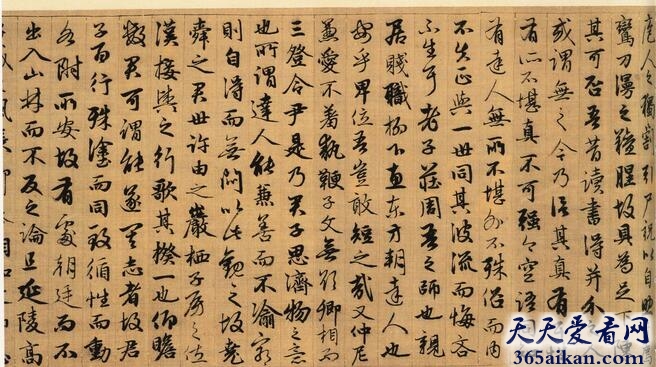 庖人之獨割引尸祝以自助
鸞刀漫之羶腥故具為足下
其可否吾昔讀書得并介人
或謂無之今乃信其真有
有所不堪真不可強今空語
有達人無所不堪外不殊俗而內
不失正與一世同其波流而悔吝
不生耳老子莊周吾之師也親
居賤職柳下惠東方朔達人也
安乎卑位吾豈敢短之哉又仲尼
兼愛不羞執鞭子文無欲卿相而
三登令尹是乃君子思濟物之意
也所謂達人能兼善而不渝窮
則自得而無悶以此觀之故堯
舜之君世許由之巖栖子房之佐
漢接輿之行歌其揆一也仰瞻
數君可謂能遂其志者故君
子百行殊塗而同致循性而動
各附所安故有處朝廷而不
出入山林而不反之論且延陵高
天天爱看网
365aikan.com